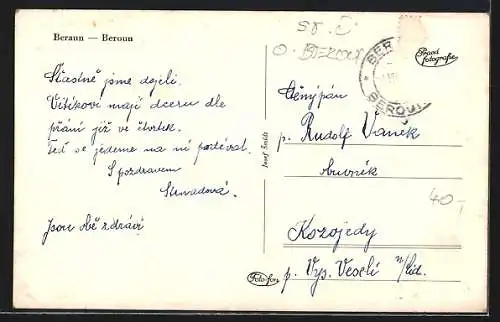 Beraun — Beroun
Šťastně jsme dojeli.
Vítkovi mají dceru dle
přání již ve čtvrtek.
Teď se jedeme na ni podívat.
S pozdravem
Jsou obě zdrávi
Josef Šmídt
Foto-fon
Pravá
fotografie
BEROUN
Ctěný pán
p. Rudolf Vaněk
obuvník
Kozojedy
p. Vys. Veselí n/Cidl.
40,-